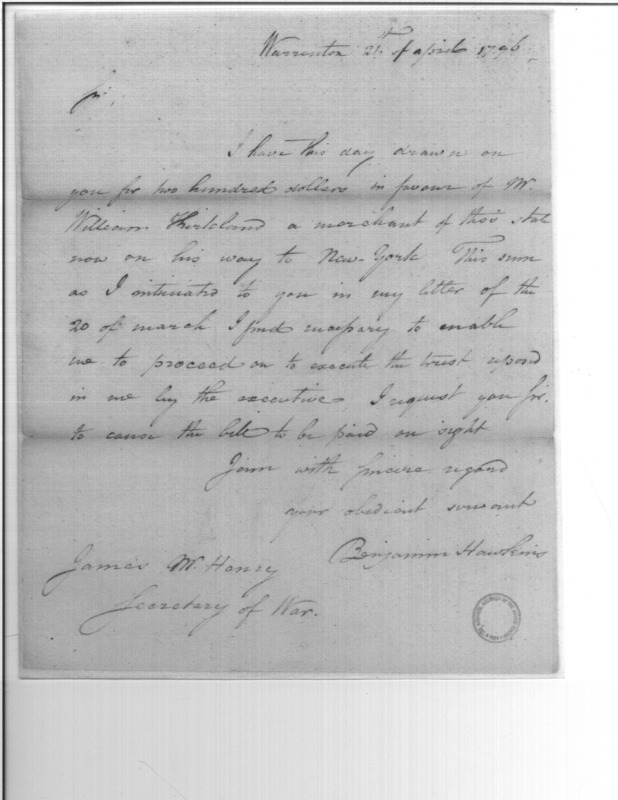 Warrenton 21st of april 1796
Sir,
I have this day drawn on
you for two hundred dollers in favour of Mr.
William Kirkland a merchant of this state
now on his way to New-York This sum
as I intimated to you in my letter of the
20 of march I find necessary to enable
me to proceed on to execute the trust reposd
in me by the executive. I request you sir.
to cause the bill to be paid on sight
I am with sincere regard
your obedient servant
Benjamin Hawkins
James McHenry
Secretary of War.